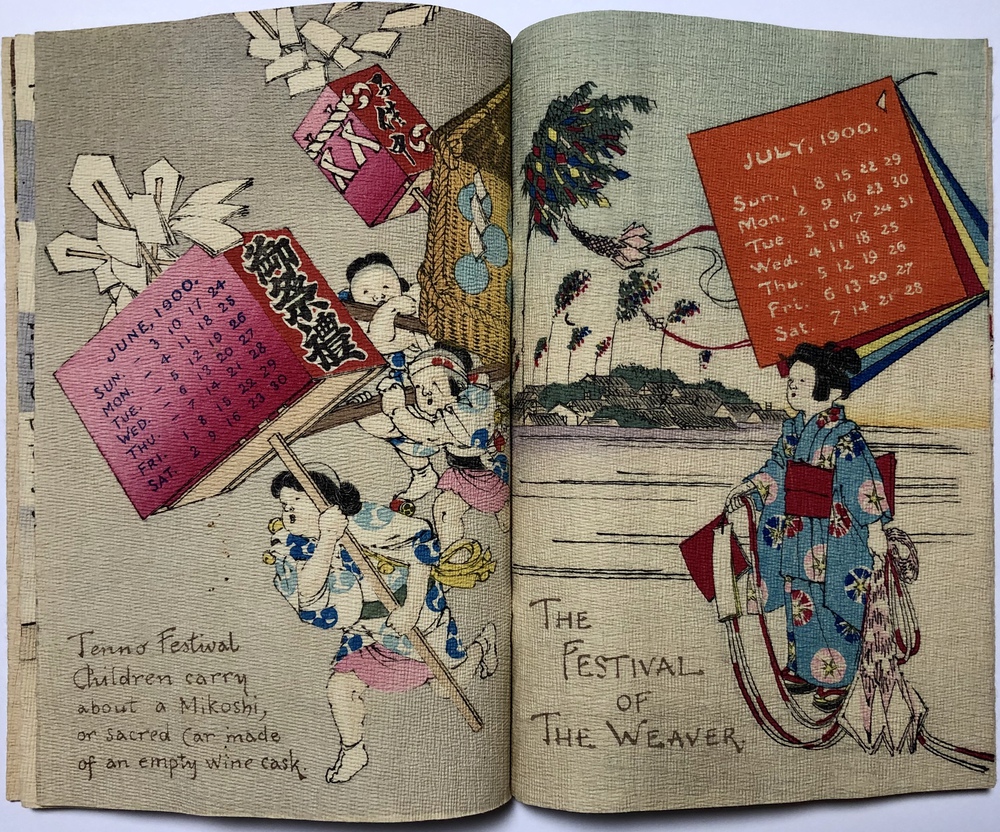 子供中
御祭禮
JUNE, 1900.
SUN. – 3 10 17 24
MON. – 4 11 18 25
TUE. – 5 12 19 26
WED. – 6 13 20 27
THU. – 7 14 21 28
FRI. 1 8 15 22 29
SAT. 2 9 16 23 30
Tenno Festival
Children carry
about a Mikoshi,
or sacred Car made
of an empty wine cask.
JULY, 1900.
Sun. 1 8 15 22 29
Mon. 2 9 16 23 30
Tue. 3 10 17 24 31
Wed. 4 11 18 25
Thu. 5 12 19 26
Fri. 6 13 20 27
Sat. 7 14 21 28
THE
FESTIVAL
OF
THE WEAVER.